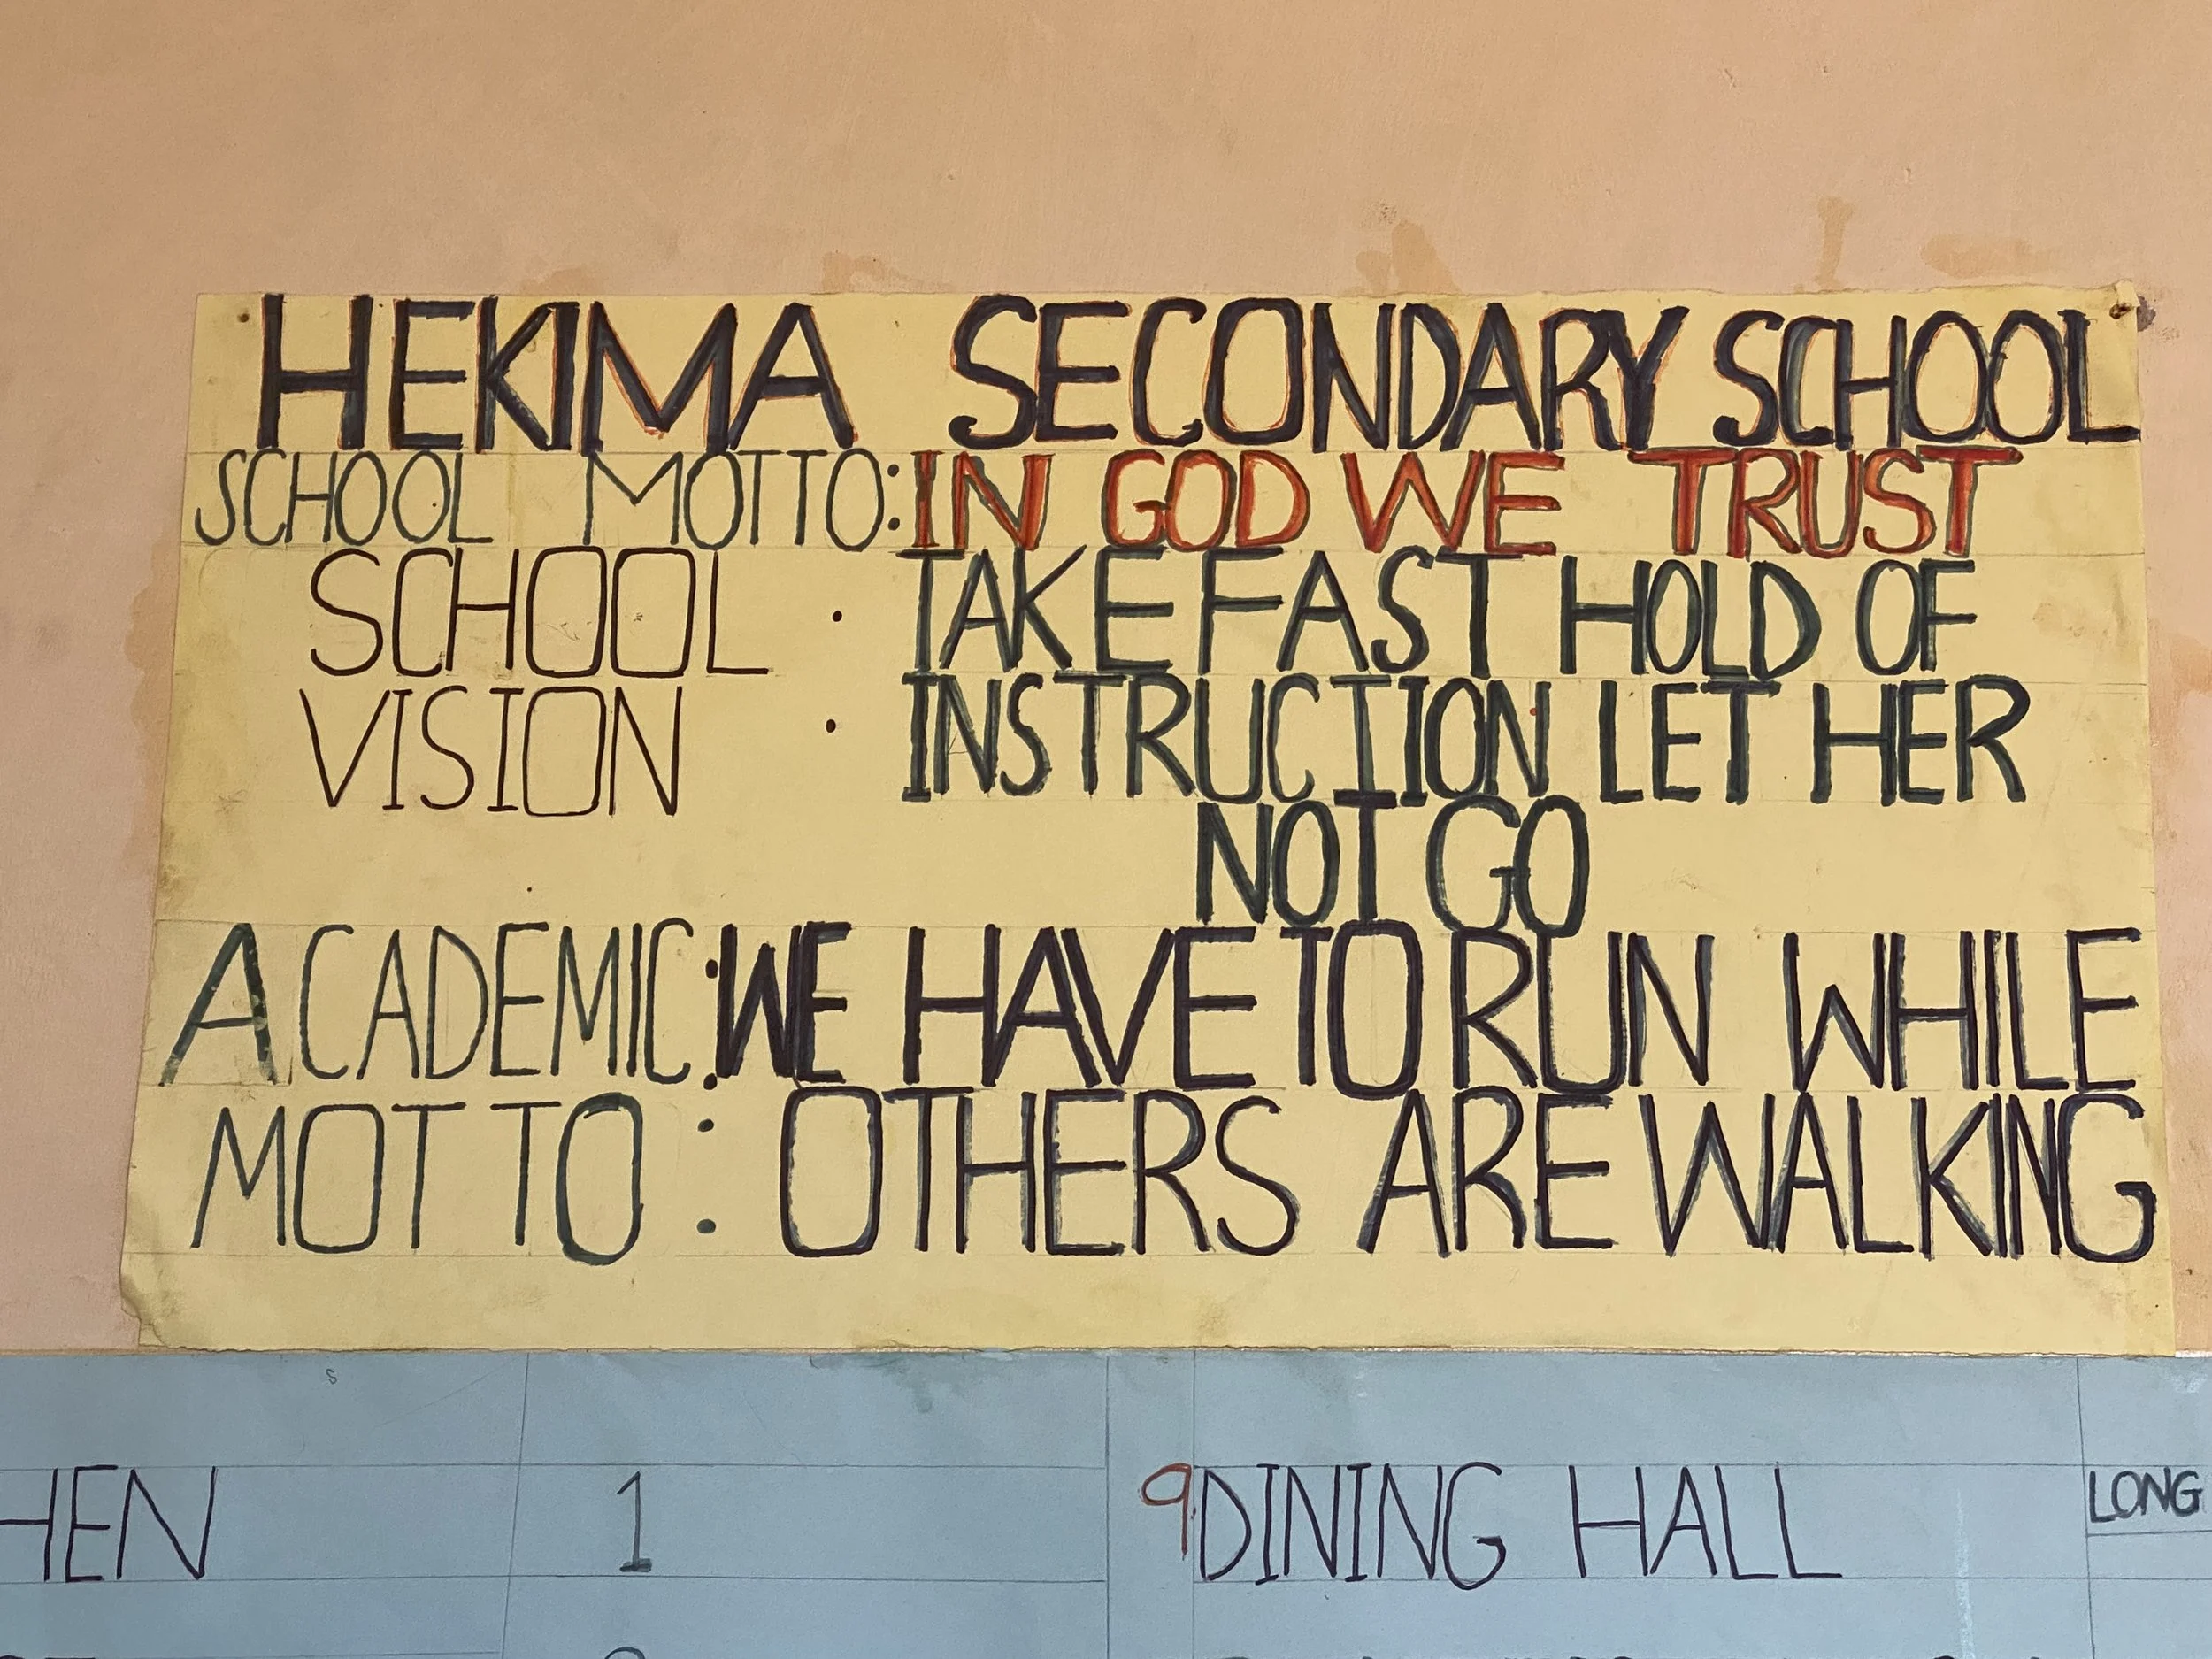 HEKIMA SECONDARY SCHOOL
SCHOOL MOTTO: IN GOD WE TRUST
SCHOOL : TAKE FAST HOLD OF
VISION INSTRUCTION LET HER
NOT GO
ACADEMIC : WE HAVE TO RUN WHILE
MOTTO : OTHERS ARE WALKING
HEN 1 9 DINING HALL LONG